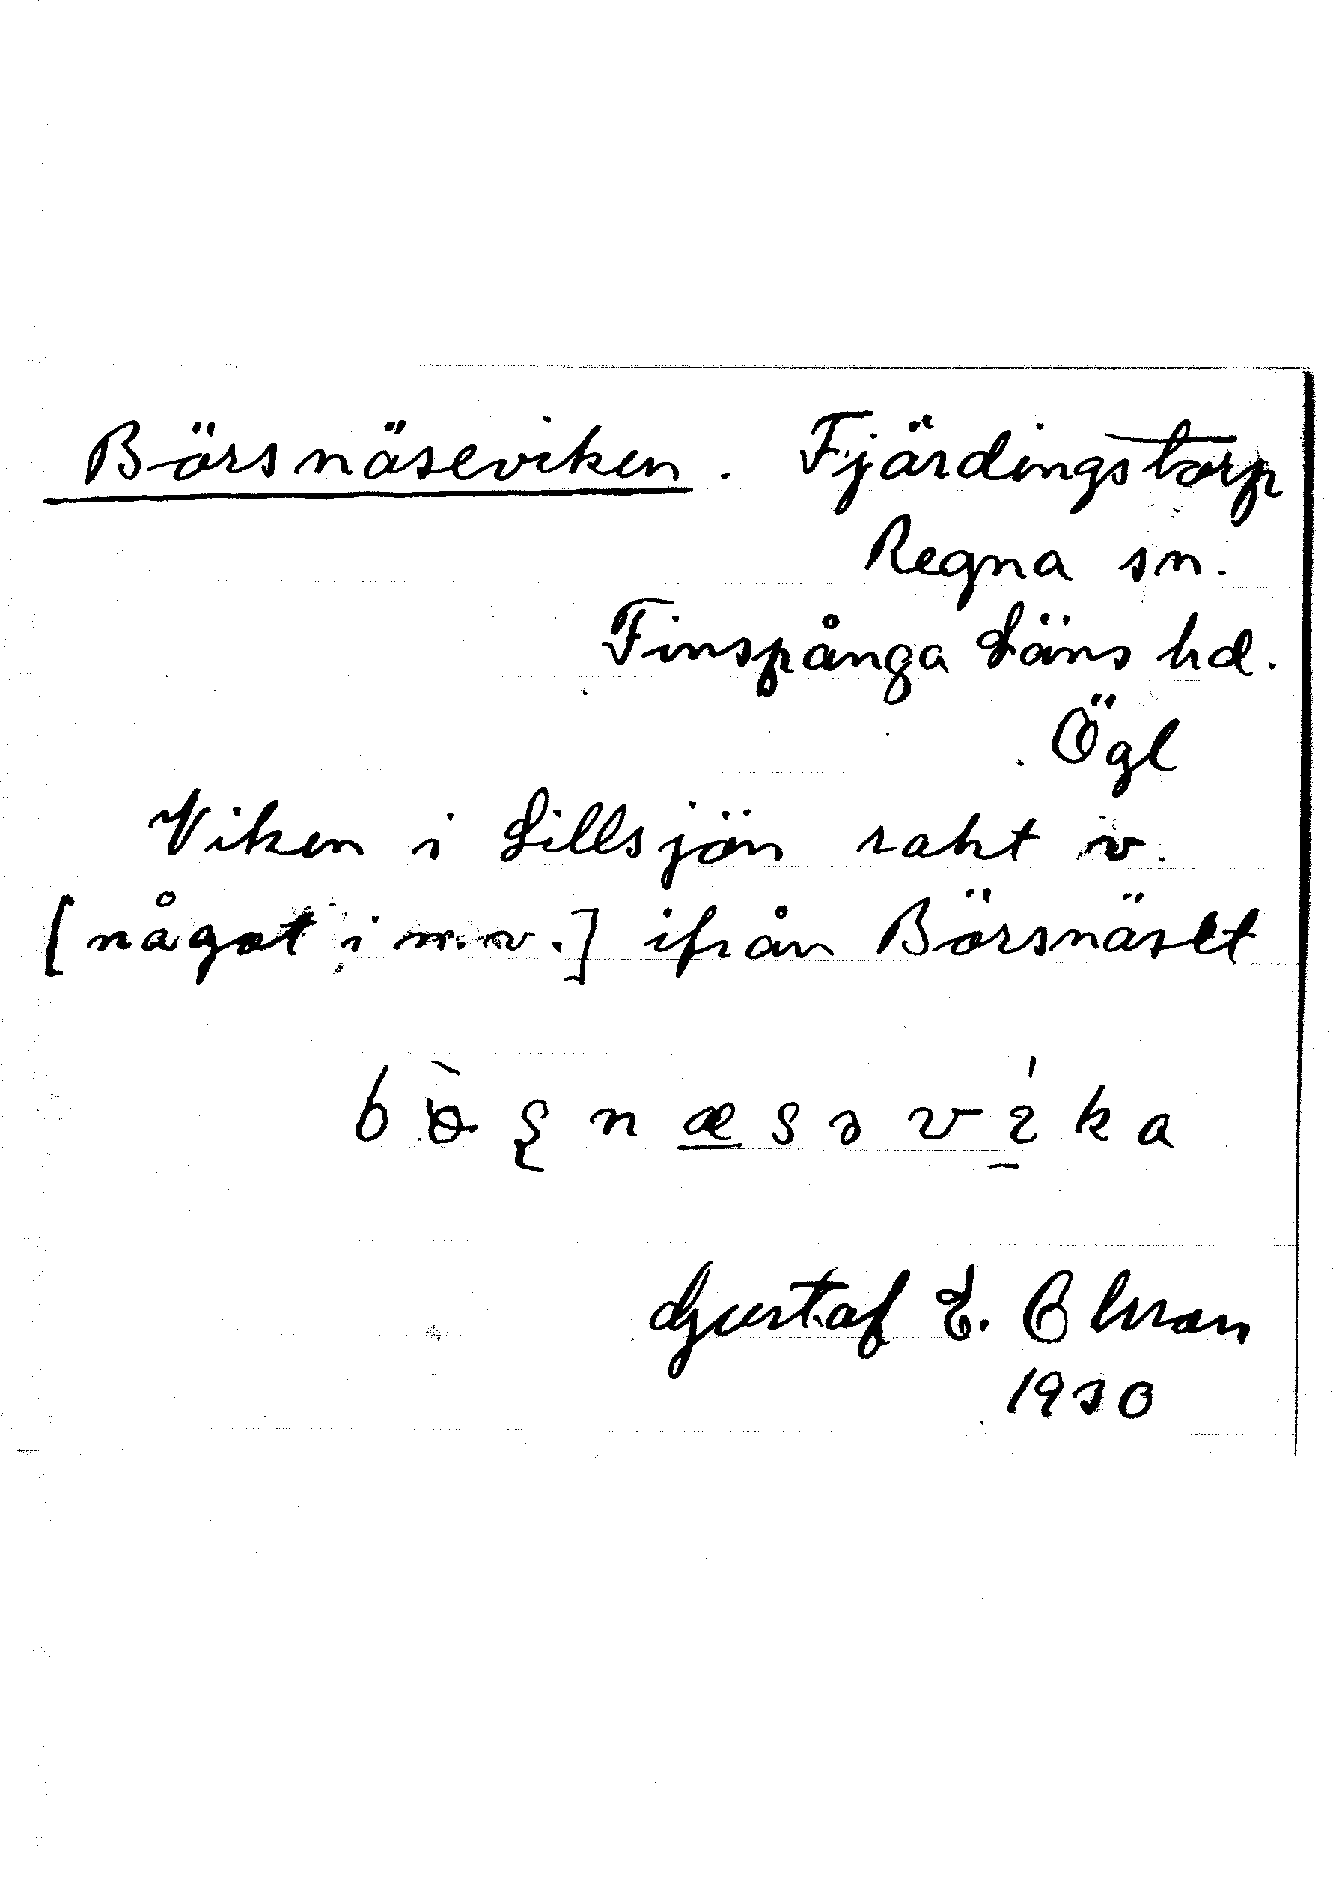 Börsnäseviken. Fjärdingstorp
Regna sn.
Finspånga Läns hd.
Ögl
Viken i Lillsjön rakt v.
[något i n.v.] ifrån Börsnäset
Gustaf E.
1930